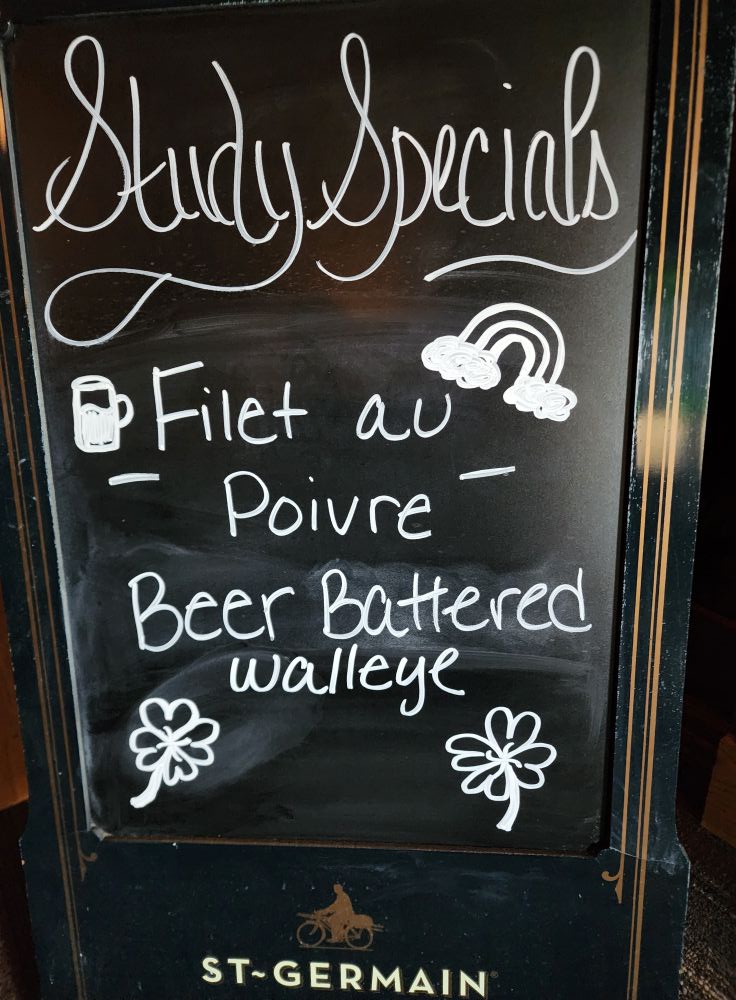 Study Specials
Filet au
- Poivre -
Beer Battered
walleye
ST~GERMAIN